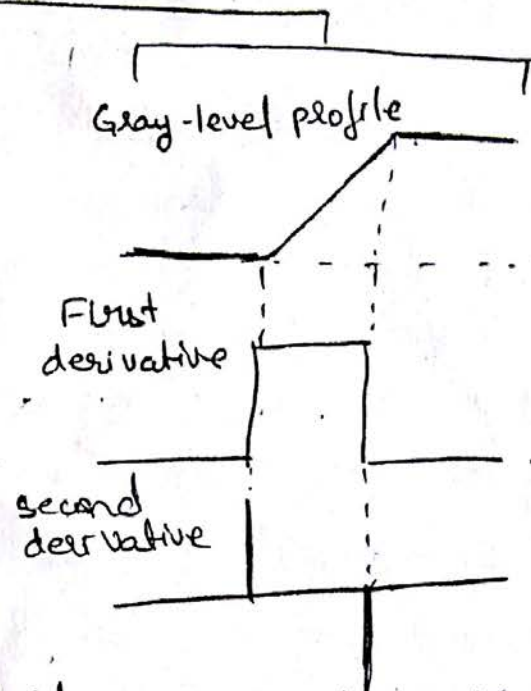 Gray-level profile
First
derivative
second
derivative